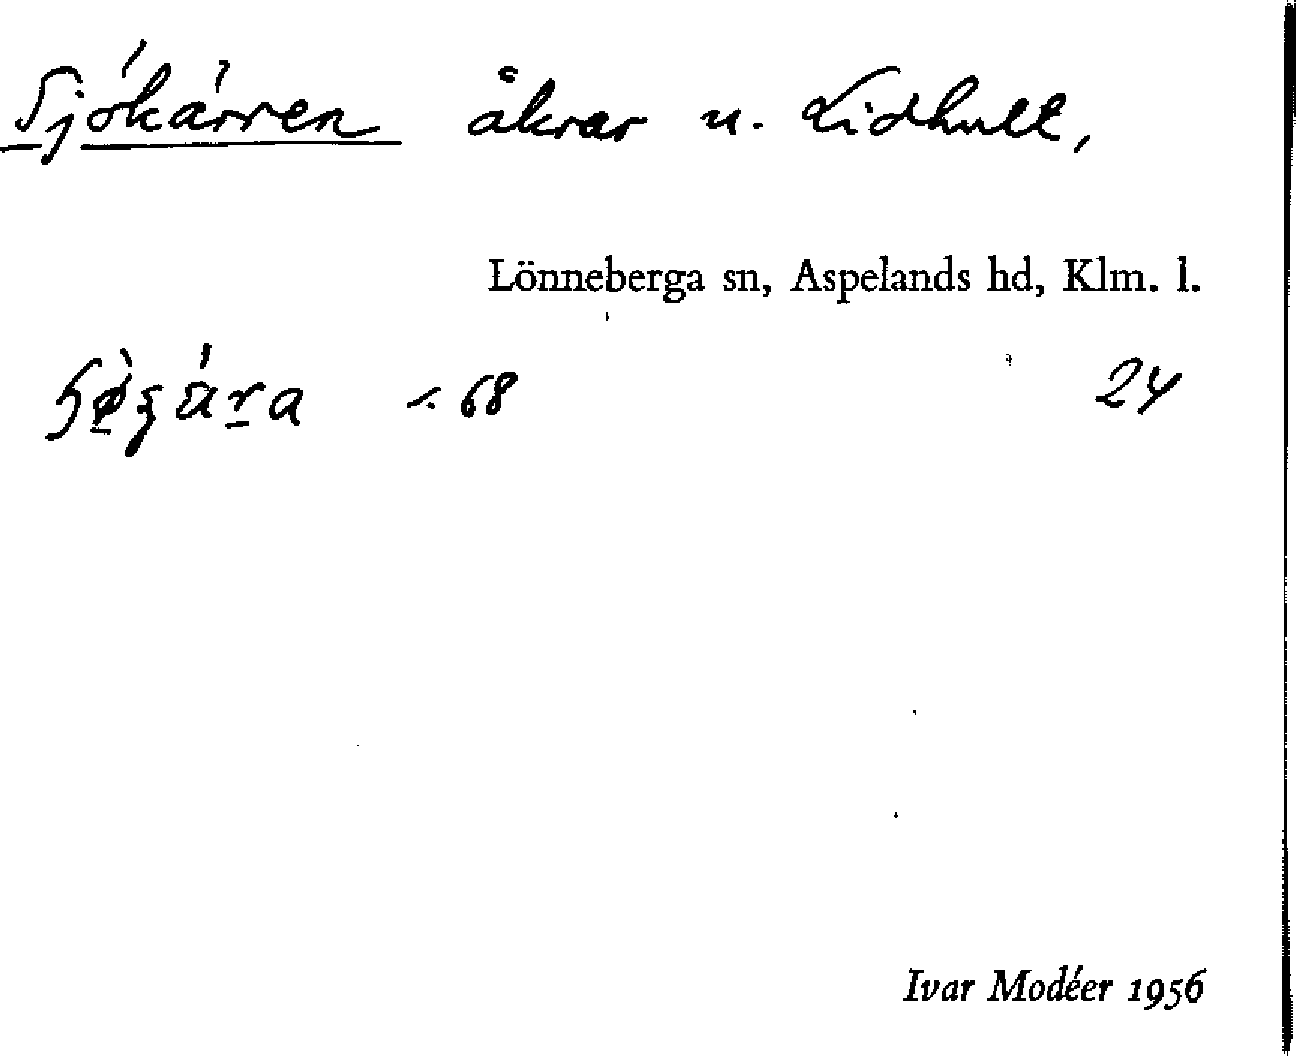 Sjökärren åkrar u. Lidhult,
Lönneberga sn, Aspelands hd, Klm. l.
68 24
Ivar Modéer 1956